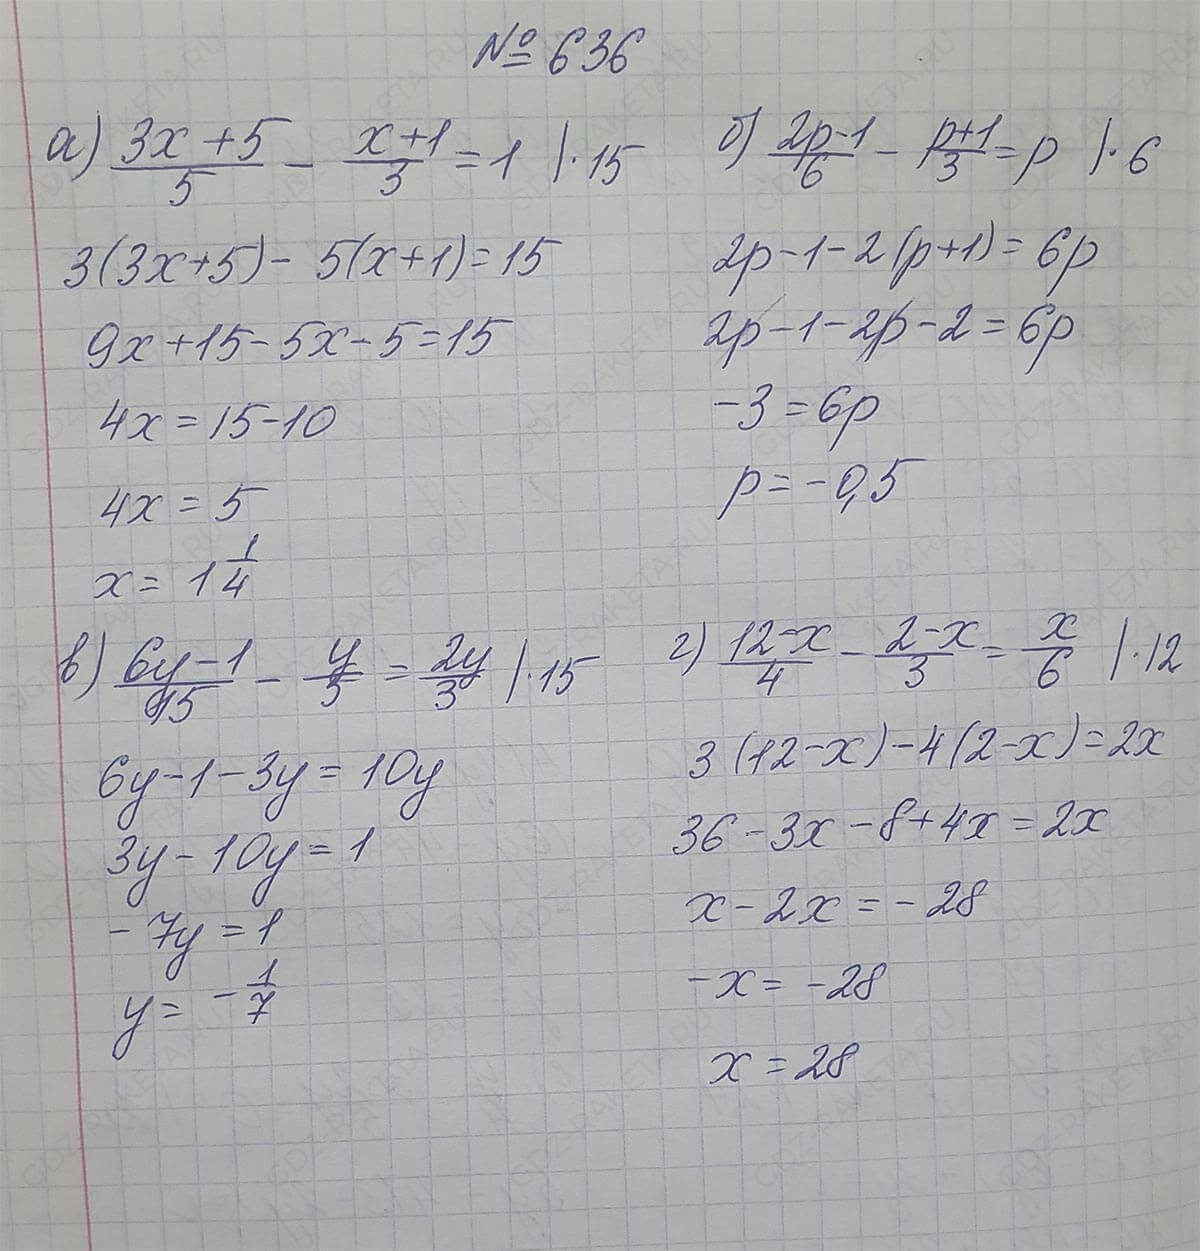 № 636
а) (3x+5)/5 - (x+1)/3 = 1 |·15
3(3x+5) - 5(x+1) = 15
9x+15-5x-5=15
4x = 15-10
4x = 5
x = 1 1/4
б) (2p-1)/6 - (p+1)/3 = p |·6
2p-1-2(p+1) = 6p
2p-1-2p-2 = 6p
-3 = 6p
p = -0,5
в) (6y-1)/15 - y/5 = 2y/3 |·15
6y-1-3y = 10y
3y-10y = 1
-7y = 1
y = -1/7
г) (12-x)/4 - (2-x)/3 = x/6 |·12
3(12-x)-4(2-x)=2x
36-3x-8+4x=2x
x-2x = -28
-x = -28
x = 28
GDZ-RAKETA.RU